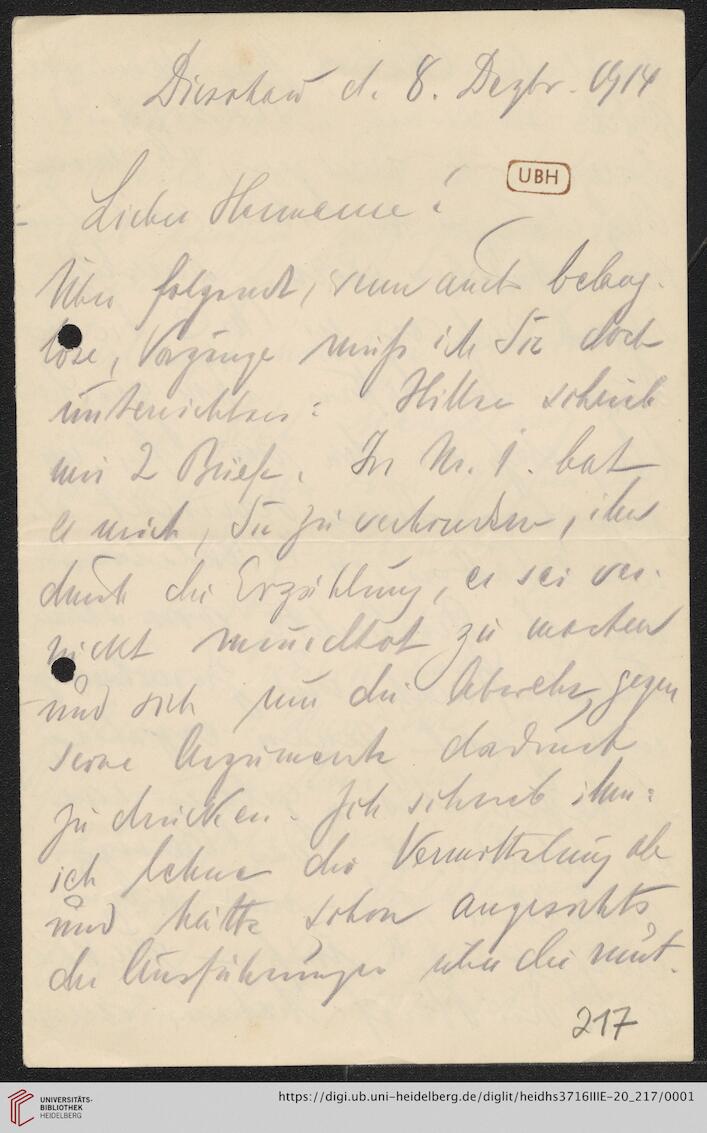 Dieskau d. 8. Dezbr. 1914
UBH
Lieber Hermann!
Über folgende, wenn auch belang-
lose, Vorgänge muß ich Sie doch
unterrichten: schrieb
mir 2 Briefe. In Nr. 1. bat
er mich, Sie zu verhindern, ihn
durch die Erzählung, er sei ver-
rückt mundtot zu machen
und sich um die Abwehr gegen
seine Argumente dadurch
zu drücken. Ich schrieb ihm:
ich lehne die Vermittelung ab
und hätte schon angesichts
der Ausführungen über die
217
UNIVERSITÄTS-
BIBLIOTHEK
HEIDELBERG
https://digi.ub.uni-heidelberg.de/diglit/heidhs3716IIIE-20_217/0001